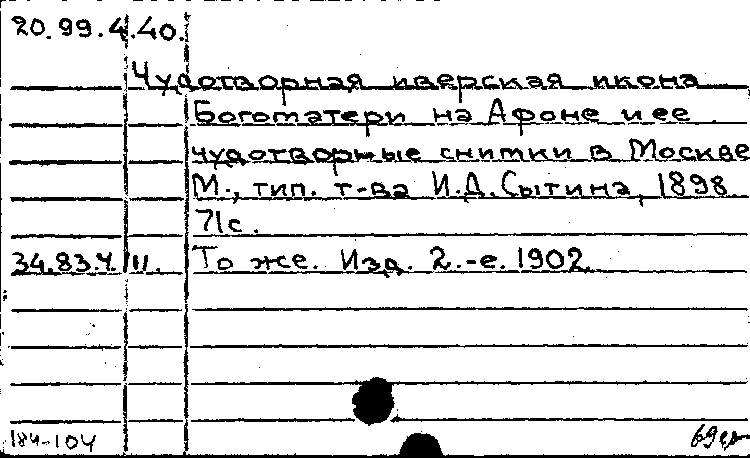 20.99.4.40.
Чудотворная иверская икона
Богоматери на Афоне и ее
чудотворные снимки в Москве
М., тип. т-ва И.Д. Сытина, 1898
71с.
34.83.4.111. То же. Изд. 2.-е. 1902.
184-104